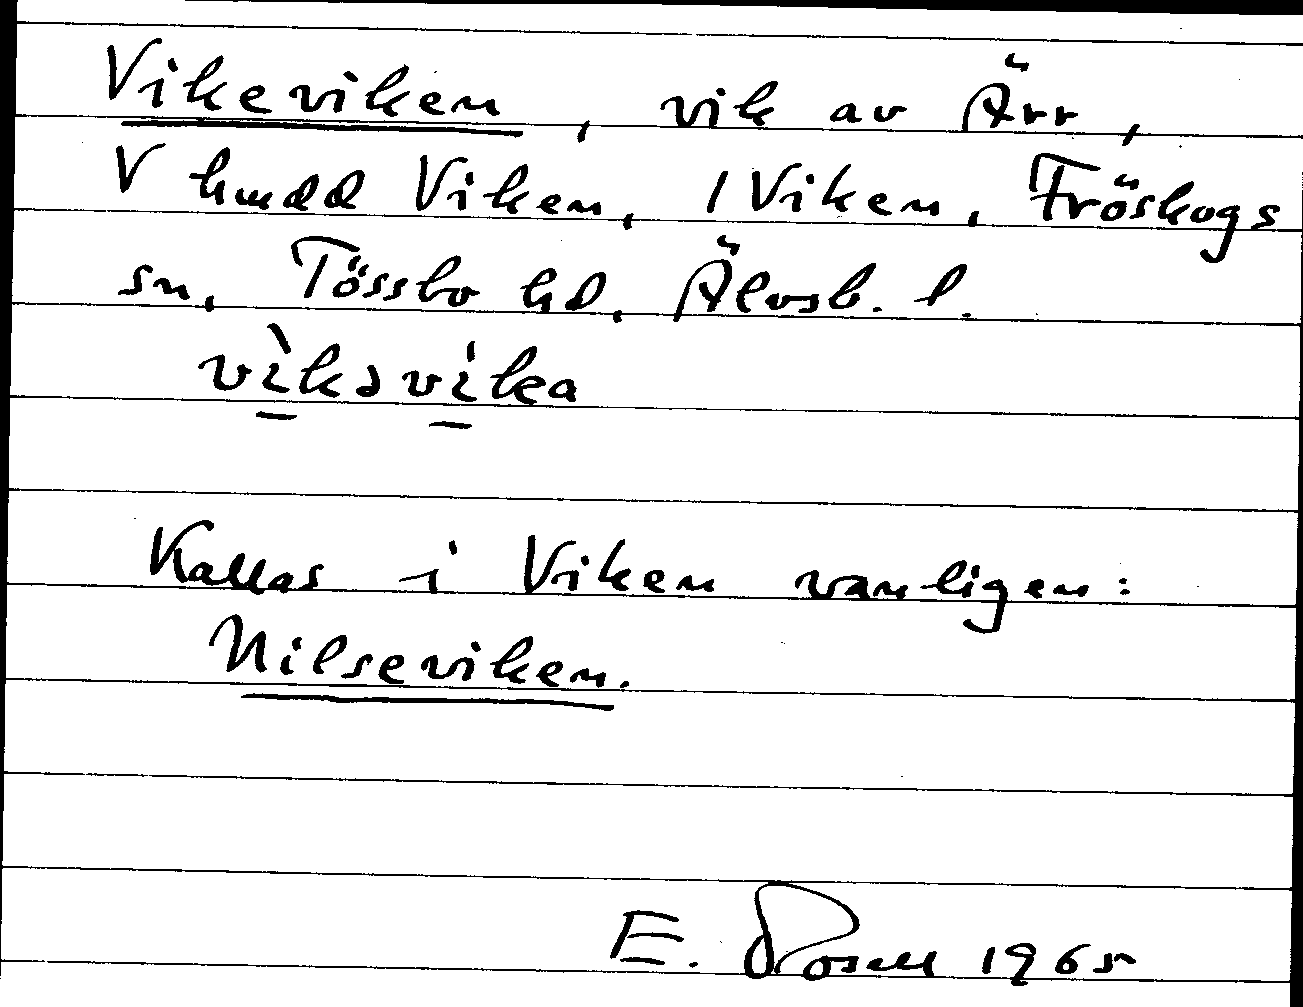 Vikeviken, vik av Ärr,
V hmdd Viken, 1 Viken, Fröskogs
sn, Tössbo hd, Älvsb. l.
vìkəvika
Kallas i Viken vanligen:
Nilseviken.
E. Rosell 1965